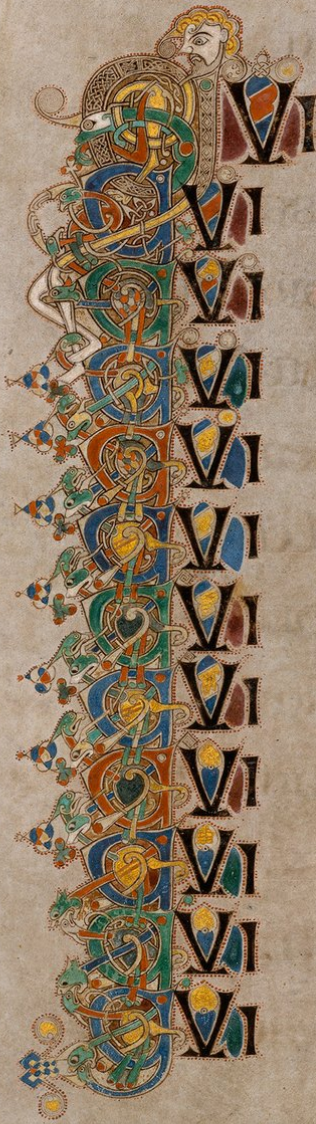 QVI
QVI
QVI
QVI
QVI
QVI
QVI
QVI
QVI
QVI
QVI
QVI